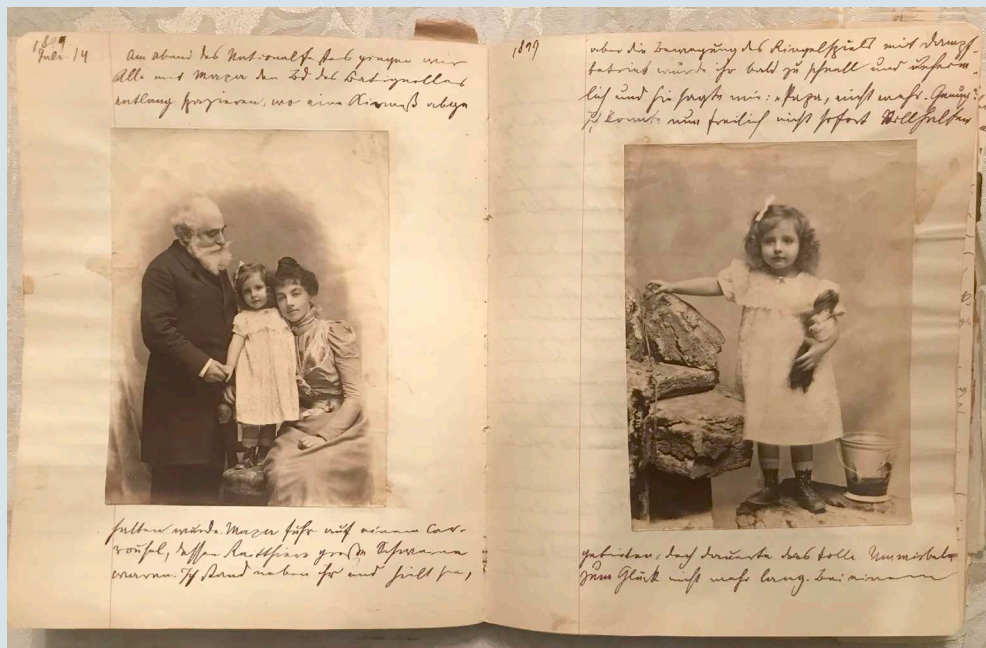 1899
Juli 14
Am abend des Nationalfestes gingen wir
Alle mit Maxa den Bd des Batignolles
entlang spazieren, wo eine Kirmeß abge
halten wurde. Maxa fuhr auf einem Car-
rousel, dessen Reitthiere große Schwäne
waren. Ich stand neben ihr und hielt sie,
1899
aber die Bewegung des Ringelspiels mit Dampf-
betrieb wurde ihr bald zu schnell und unheim-
lich und sie sagte mir: „Papa, nicht mehr. Genug!“
Ich konnte nun freilich nicht sofort Stillhalten
gebieten, doch dauerte das tolle Umwirbeln
zum Glück nicht mehr lang. Bei einem